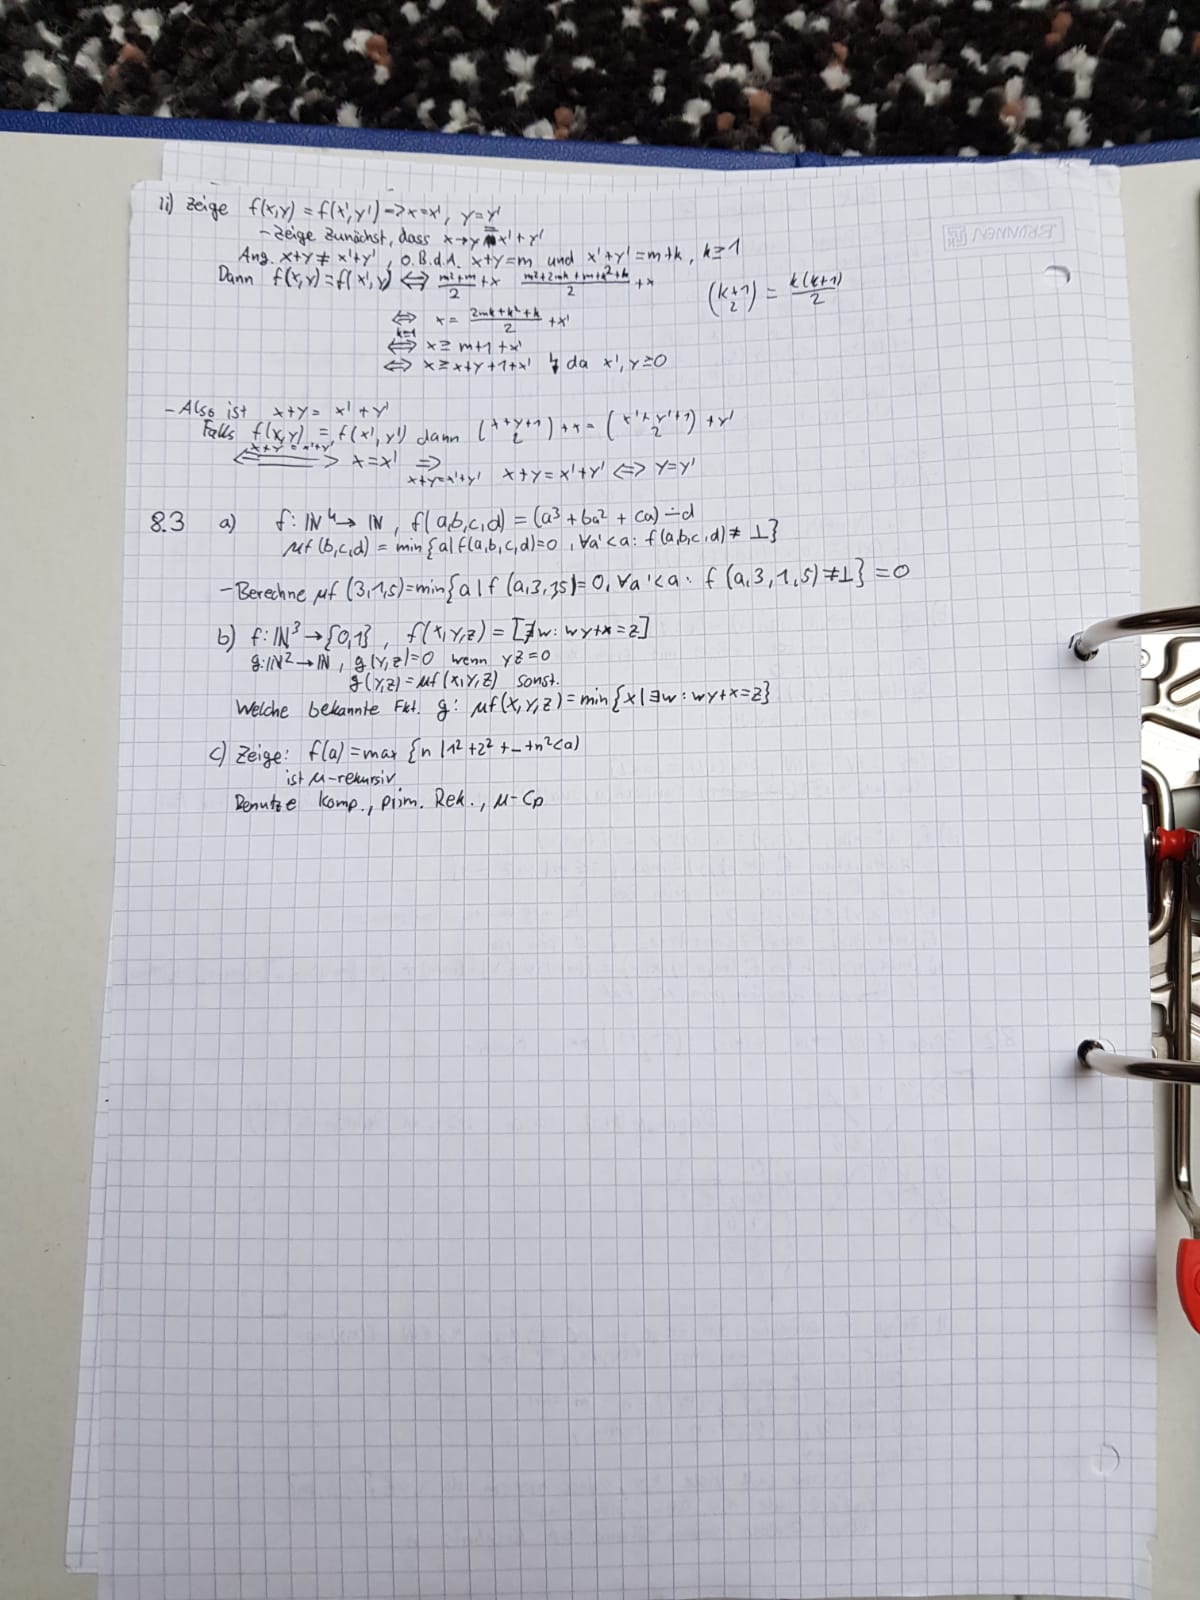 ii) Zeige f(x,y) = f(x',y') => x=x', y=y'
- Zeige zunächst, dass x+y = x'+y'
Ang. x+y ≠ x'+y', o.B.d.A. x+y=m und x'+y'=m+k, k≥1
Dann f(x,y)=f(x',y') ⇔ (m²+m)/2 + x (m²+2mk+m+k²+k)/2 + x
(k+1 über 2) = k(k+1)/2
⇔ x = (2mk+k²+k)/2 + x'
k≥1 ⇔ x ≥ m+1+x'
⇔ x ≥ x+y+1+x' ↯ da x', y ≥ 0
- Also ist x+y = x'+y'
Falls f(x,y) = f(x',y') dann (x+y+1 über 2) + x = (x'+y'+1 über 2) + y'
x+y = x'+y' ⇔ x=x' ⇒ x+y=x'+y' x+y=x'+y' ⇔ y=y'
8.3 a) f: ℕ⁴ → ℕ, f(a,b,c,d) = (a³ + ba² + ca) ∸ d
μf(b,c,d) = min{a|f(a,b,c,d)=0, ∀a'<a: f(a,b,c,d) ≠ ⊥}
- Berechne μf(3,1,5)=min{a|f(a,3,1,5)=0, ∀a'<a: f(a,3,1,5)≠⊥} = 0
b) f: ℕ³ → {0,1}, f(x,y,z) = [∄w: wy+x=z]
g: ℕ² → ℕ, g(y,z)=0 wenn yz=0
g(y,z) = μf(x,y,z) sonst.
Welche bekannte Fkt. g: μf(x,y,z) = min{x|∃w: wy+x=z}
c) Zeige: f(a) = max {n | 1²+2²+...+n²<a)
ist μ-rekursiv
Benutze Komp., prim. Rek., μ-Op